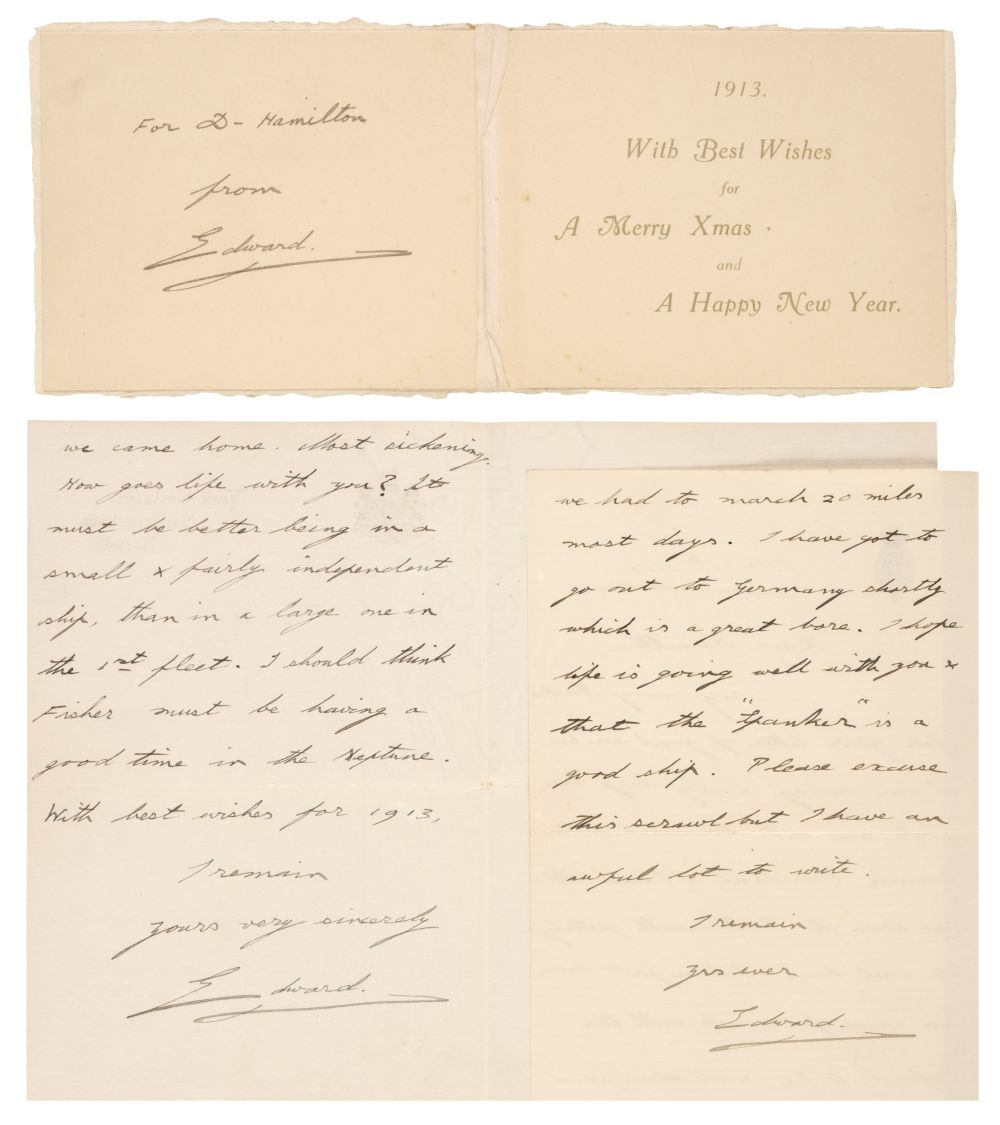 For D- Hamilton
from
Edward.
1913.
With Best Wishes
for
A Merry Xmas .
and
A Happy New Year.
we came home. Most sickening.
How goes life with you? It
must be better being in a
small & fairly independent
ship, than in a large one in
the 1st fleet. I should think
Fisher must be having a
good time in the Neptune.
With best wishes for 1913,
I remain
yours very sincerely
Edward.
we had to march 20 miles
most days. I have got to
go out to Germany shortly
which is a great bore. I hope
life is going well with you &
that the "Spanker" is a
good ship. Please excuse
this scrawl but I have an
awful lot to write.
I remain
yrs ever
Edward.